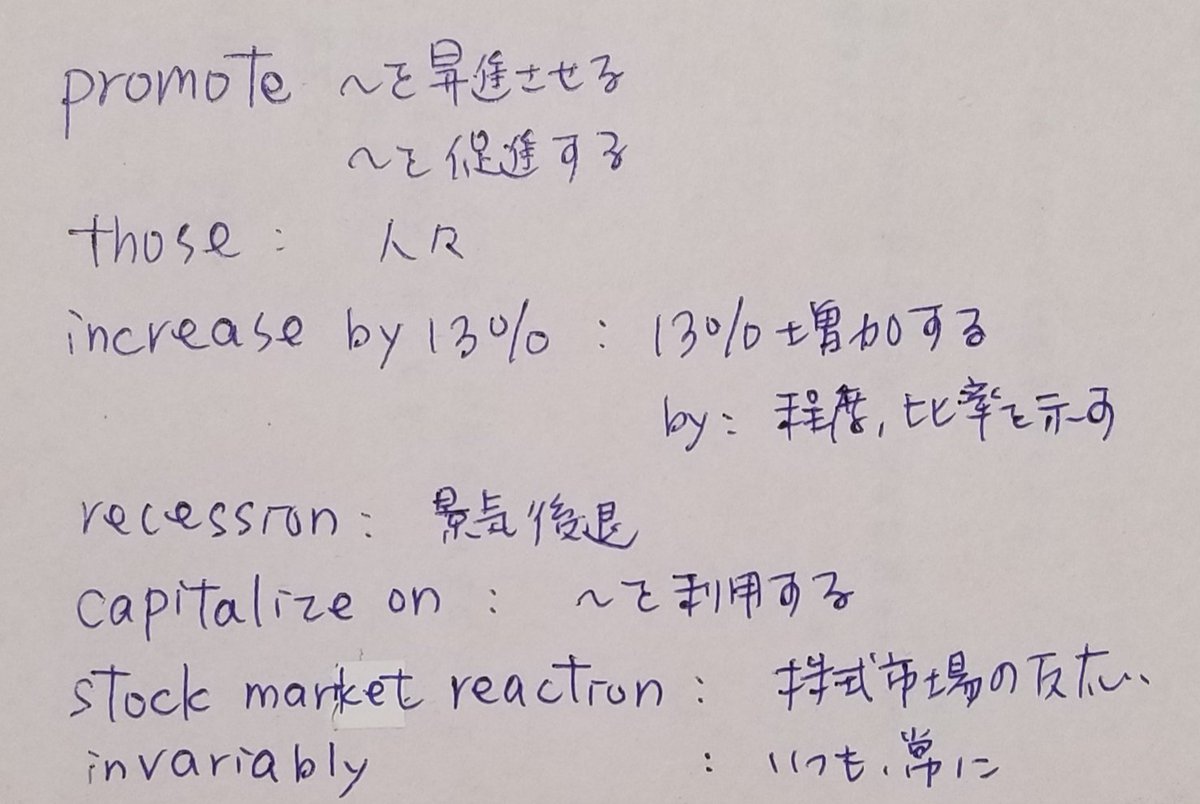 promote ～を昇進させる
～を促進する
those : 人々
increase by 13% : 13%増加する
by: 程度, 比率を示す
recession : 景気後退
capitalize on : ～を利用する
stock market reaction : 株式市場の反応
invariably : いつも、常に